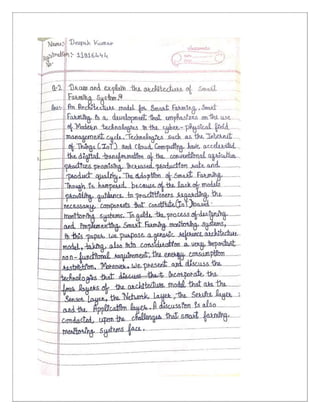 Name: Deepak Kumar
Registration No:- 11916444
classmate
Q.2 Draw and explain the architecture of Smart
Farming System.
Ans:- An Architecture model for Smart Farming. Smart
Farming is a development that emphasizes on the use
of Modern technologies in the cyber-physical field
management cycle. Technologies such as the Internet
of Things (IoT) and Cloud Computing have accelerated
the digital transformation of the conventional agricultural
practices promising increased production rate and
product quality. The adoption of Smart Farming
Though is hampered because of the lack of models
providing guidance to practitioners regarding the
necessary components that constitute (IoT) based
monitoring systems. To guide the process of designing
and implementing Smart Farming monitoring systems,
in this paper we purpose a generic reference architecture
model, taking also into consideration a very important
non-functional requirement, the energy consumption
restriction. Moreover, we present and discuss the
technologies that discuss that incorporate the
four layers of the architecture model that are the
Sensor layer, the Network Layer, the Service layer
and the Application layer. A discussion is also
conducted upon the challenges that smart farming
monitoring systems face.